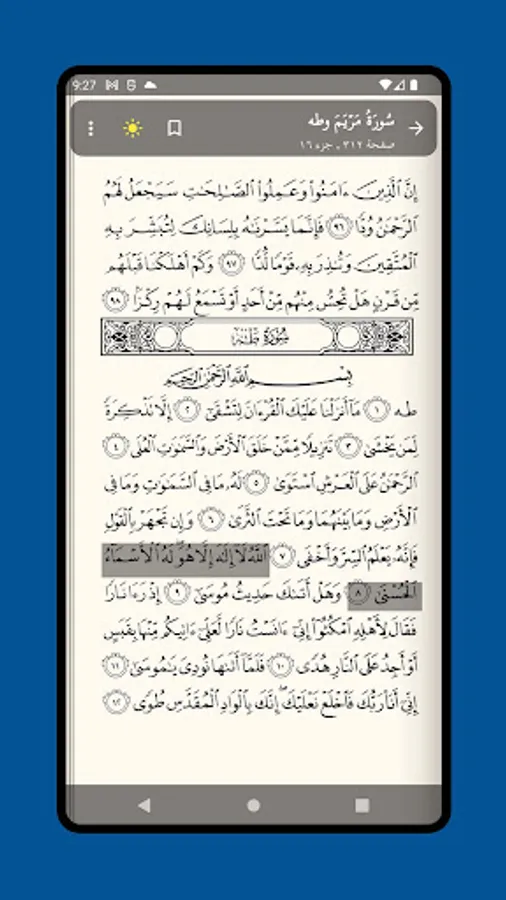 9:27
سُورَةُ مَرْيَمَ وطه
صفحة ٣١٢ ـ جزء ١٦
إِنَّ ٱلَّذِينَ ءَامَنُوا۟ وَعَمِلُوا۟ ٱلصَّٰلِحَٰتِ سَيَجْعَلُ لَهُمُ
ٱلرَّحْمَٰنُ وُدًّا ٩٦ فَإِنَّمَا يَسَّرْنَٰهُ بِلِسَانِكَ لِتُبَشِّرَ بِهِ
ٱلْمُتَّقِينَ وَتُنذِرَ بِهِۦ قَوْمًا لُّدًّا ٩٧ وَكَمْ أَهْلَكْنَا قَبْلَهُم
مِّن قَرْنٍ هَلْ تُحِسُّ مِنْهُم مِّنْ أَحَدٍ أَوْ تَسْمَعُ لَهُمْ رِكْزًۢا ٩٨
سُورَةُ طه
بِسْمِ ٱللَّهِ ٱلرَّحْمَٰنِ ٱلرَّحِيمِ
طه ١ مَآ أَنزَلْنَا عَلَيْكَ ٱلْقُرْءَانَ لِتَشْقَىٰٓ ٢ إِلَّا تَذْكِرَةً
لِّمَن يَخْشَىٰ ٣ تَنزِيلًا مِّمَّنْ خَلَقَ ٱلْأَرْضَ وَٱلسَّمَٰوَٰتِ ٱلْعُلَى ٤
ٱلرَّحْمَٰنُ عَلَى ٱلْعَرْشِ ٱسْتَوَىٰ ٥ لَهُۥ مَا فِى ٱلسَّمَٰوَٰتِ وَمَا فِى
ٱلْأَرْضِ وَمَا بَيْنَهُمَا وَمَا تَحْتَ ٱلثَّرَىٰ ٦ وَإِن تَجْهَرْ بِٱلْقَوْلِ
فَإِنَّهُۥ يَعْلَمُ ٱلسِّرَّ وَأَخْفَى ٧ ٱللَّهُ لَآ إِلَٰهَ إِلَّا هُوَ ۖ لَهُ ٱلْأَسْمَآءُ
ٱلْحُسْنَىٰ ٨ وَهَلْ أَتَىٰكَ حَدِيثُ مُوسَىٰٓ ٩ إِذْ رَءَا نَارًا
فَقَالَ لِأَهْلِهِ ٱمْكُثُوٓا۟ إِنِّىٓ ءَانَسْتُ نَارًا لَّعَلِّىٓ ءَاتِيكُم مِّنْهَا بِقَبَسٍ
أَوْ أَجِدُ عَلَى ٱلنَّارِ هُدًى ١٠ فَلَمَّآ أَتَىٰهَا نُودِىَ يَٰمُوسَىٰٓ ١١
إِنِّىٓ أَنَا۠ رَبُّكَ فَٱخْلَعْ نَعْلَيْكَ ۖ إِنَّكَ بِٱلْوَادِ ٱلْمُقَدَّسِ طُوًى ١٢